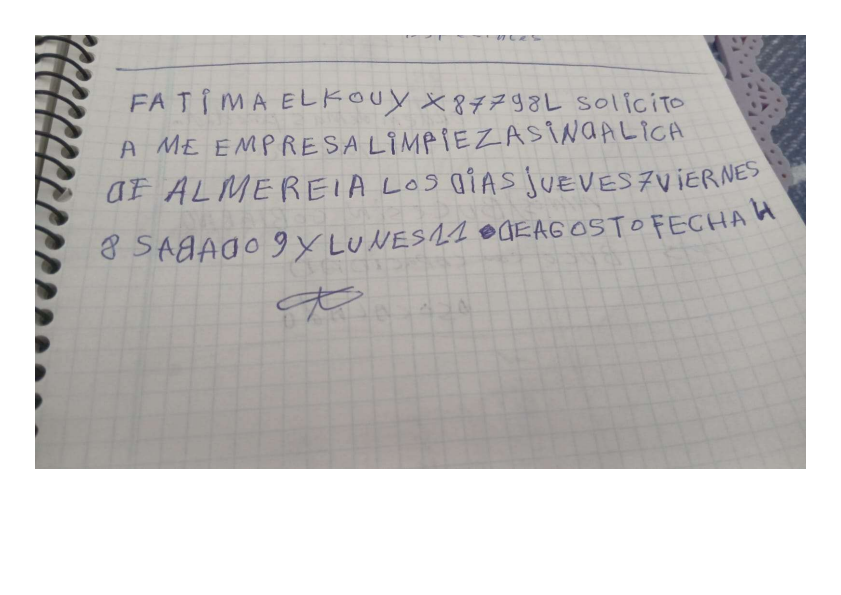 FATIMA ELKOUY X87798L SOLICITO
A ME EMPRESA LIMPIEZA SINDALICA
DE ALMEREIA LOS DIAS JUEVES 7 VIERNES
8 SABADO 9 Y LUNES 11 DE AGOSTO FECHA 4